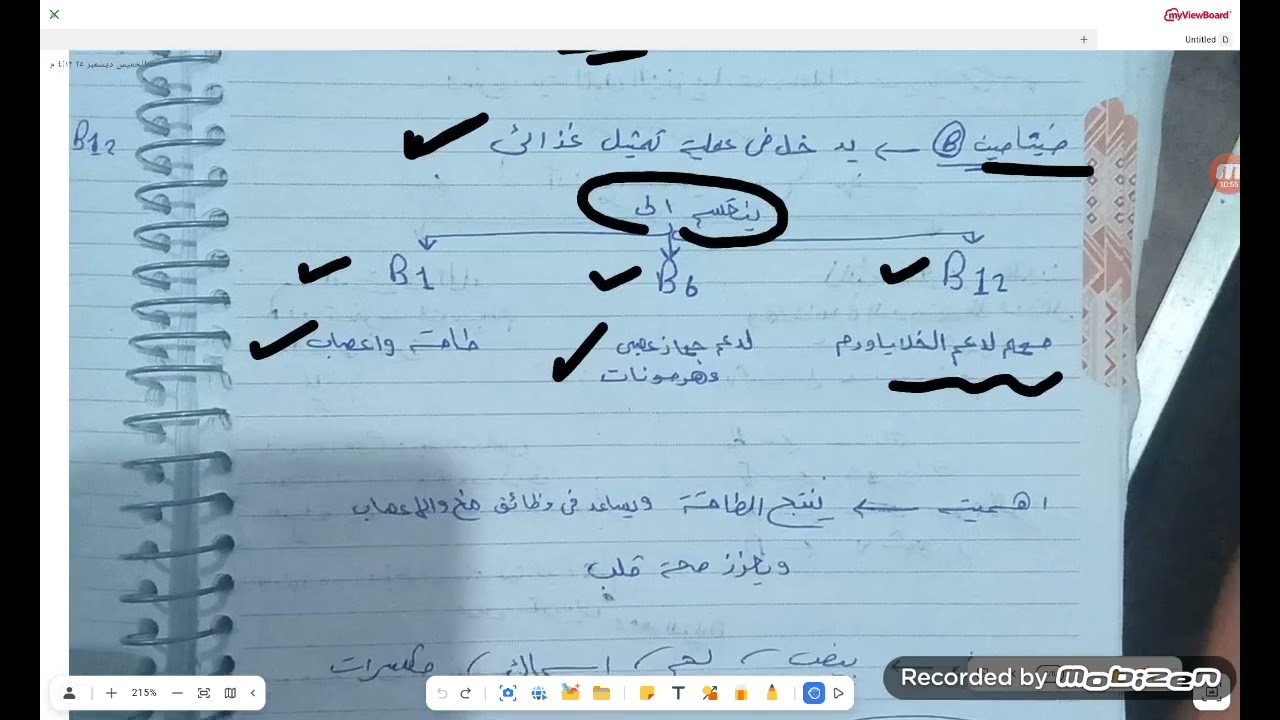 myViewBoard
Untitled
الخميس ديسمبر ٢٥ ٤:١٢ م
B12
ڤيتامين B ← يدخل في عملية تمثيل غذائي
ينقسم الى
B12
B6
B1
مهم لدعم الخلايا ودم
لدعم جهاز عصبي
وهرمونات
طاقة واعصاب
10:55
اهميته ← ينتج الطاقة ويساعد في وظائف مخ والاعصاب
ويعزز صحة قلب
بيض، لحم، اسماك، مكسرات
215%
Recorded by mobizen